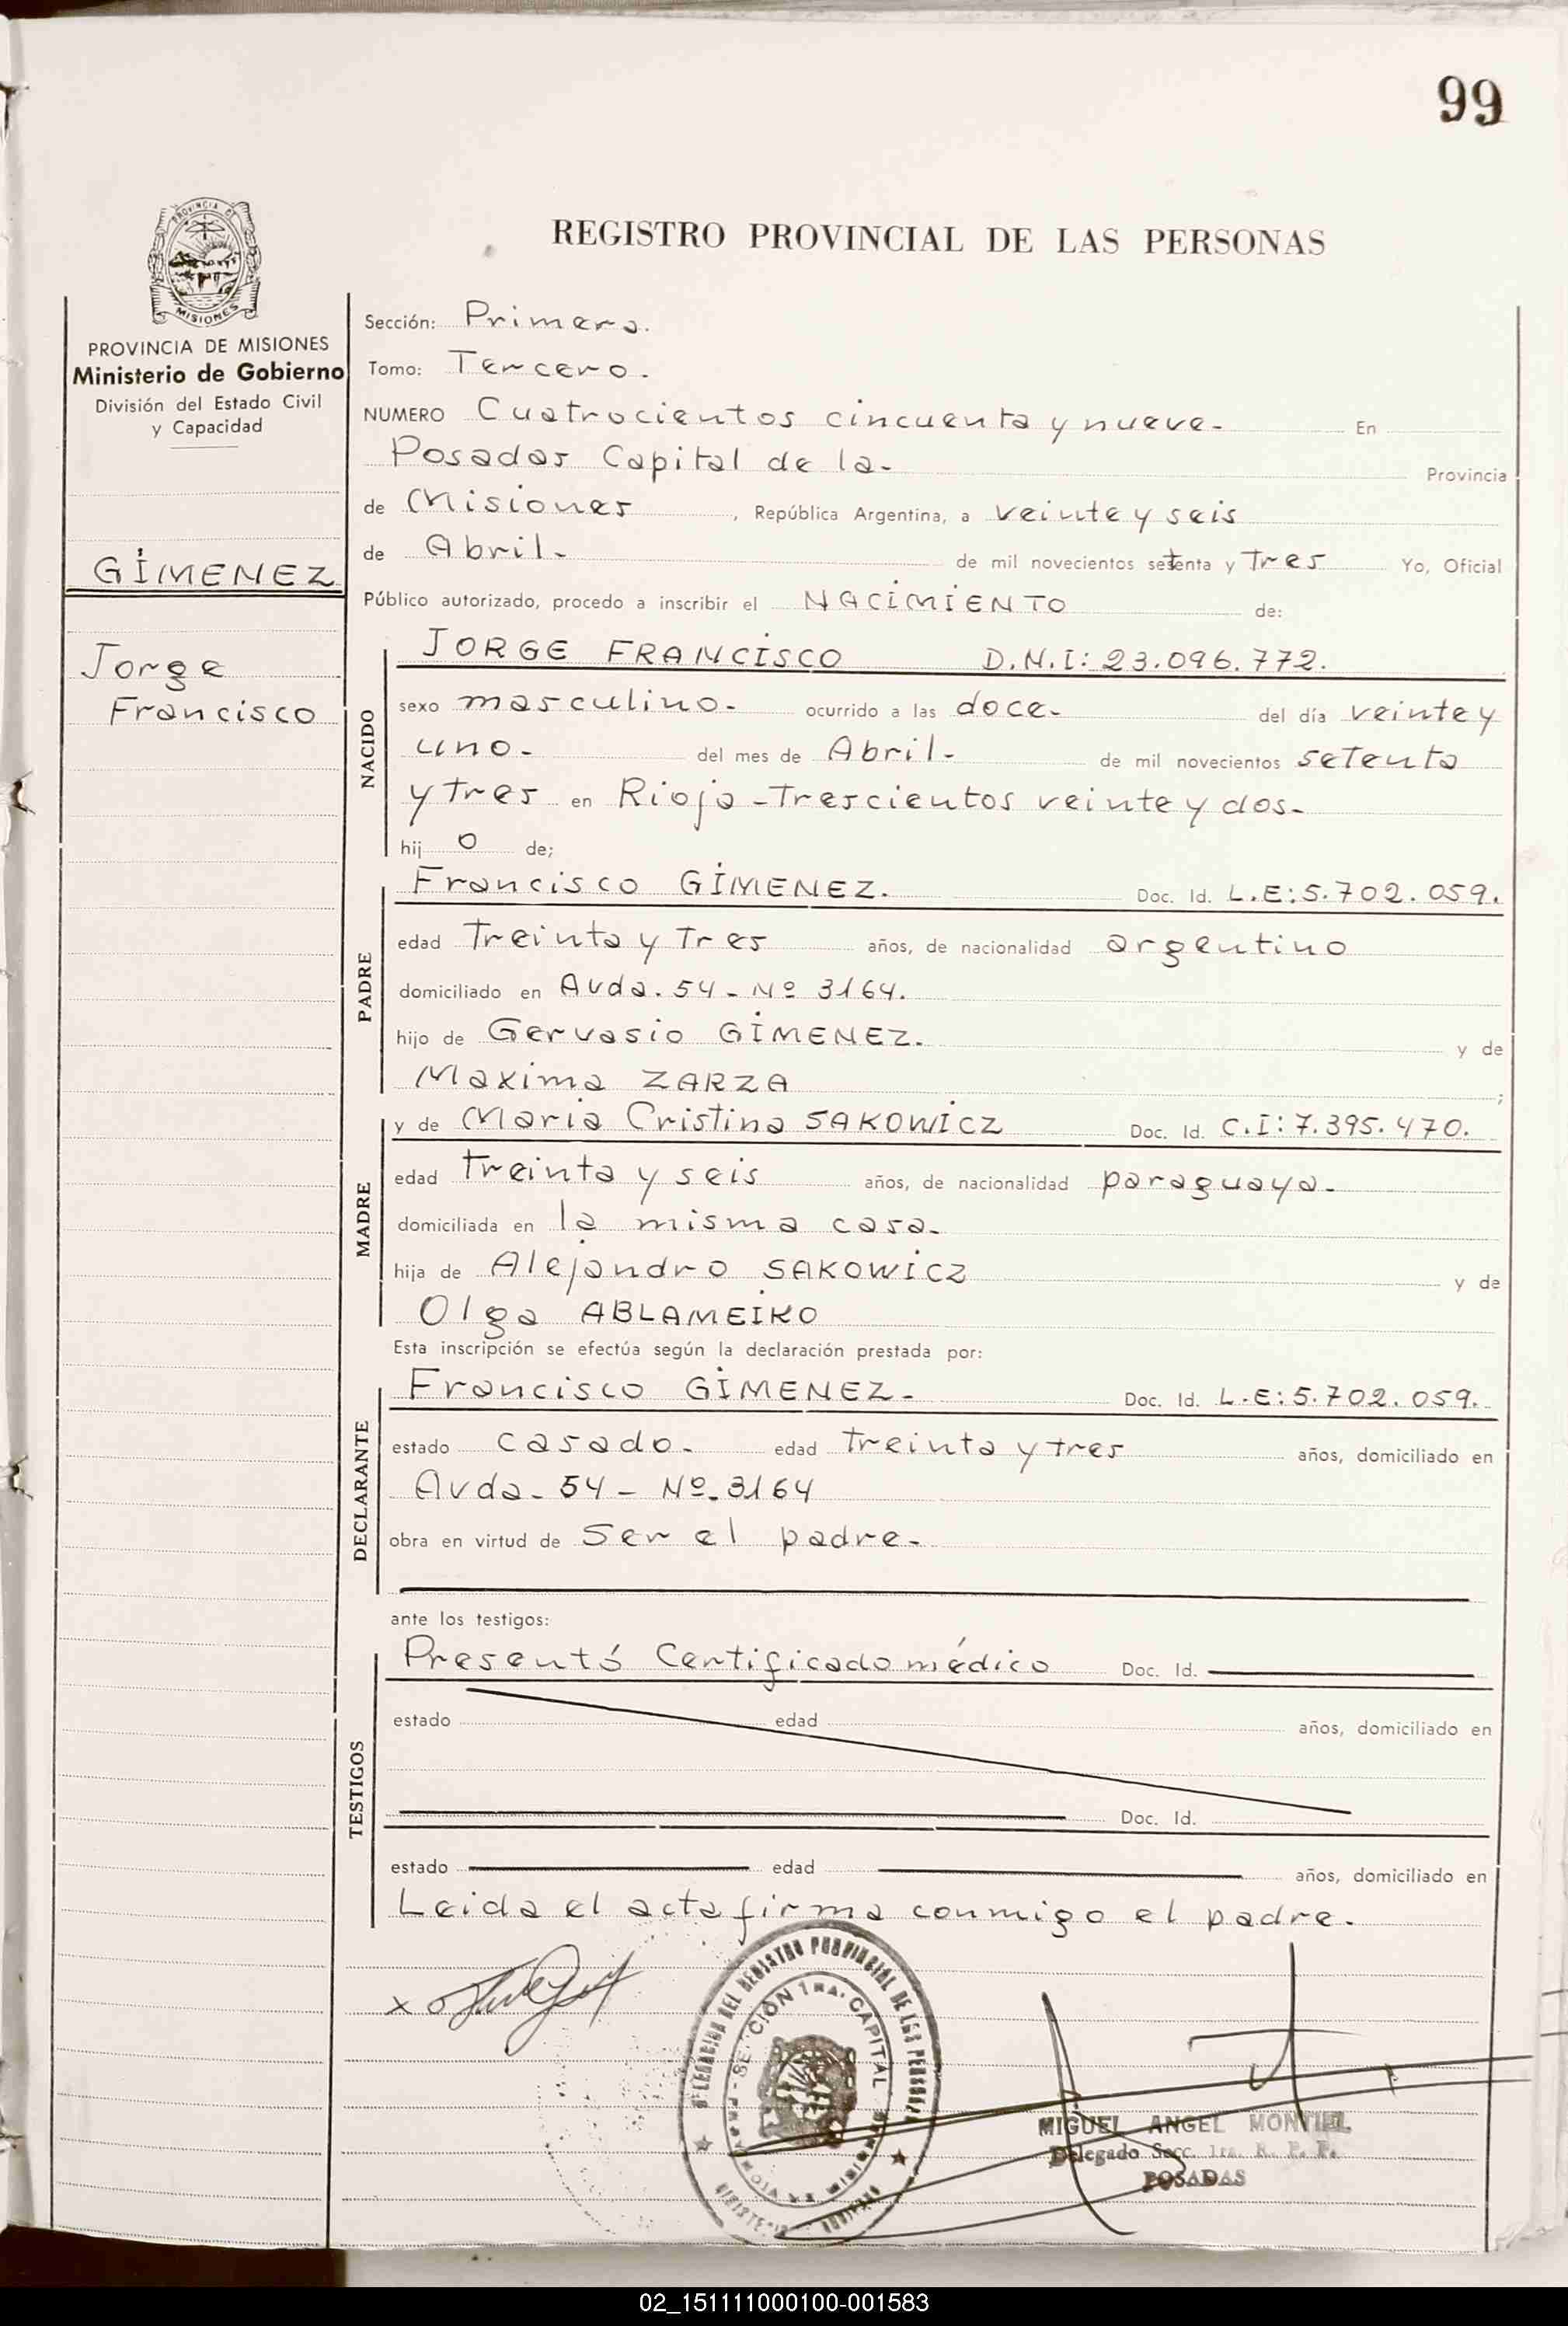 99
REGISTRO PROVINCIAL DE LAS PERSONAS
PROVINCIA DE
MISIONES
PROVINCIA DE MISIONES
Ministerio de Gobierno
División del Estado Civil
y Capacidad
GIMENEZ
Jorge
Francisco
Sección: Primera.
Tomo: Tercero.
NUMERO Cuatrocientos cincuenta y nueve. En
Posadas Capital de la. Provincia
de Misiones, República Argentina, a veinte y seis
de Abril. de mil novecientos setenta y tres Yo, Oficial
Público autorizado, procedo a inscribir el NACIMIENTO de:
NACIDO
JORGE FRANCISCO D.N.I: 23.096.772.
sexo masculino. ocurrido a las doce. del día veinte y
uno. del mes de Abril. de mil novecientos setenta
y tres en Rioja-Trescientos veinte y dos.
hij o de;
PADRE
Francisco GIMENEZ. Doc. Id. L.E: 5.702.059.
edad Treinta y Tres años, de nacionalidad argentino
domiciliado en Avda. 54 - Nº 3164.
hijo de Gervasio GIMENEZ. y de
Maxima ZARZA ;
MADRE
y de Maria Cristina SAKOWICZ Doc. Id. C.I: 7.395.470.
edad Treinta y seis años, de nacionalidad paraguaya.
domiciliada en la misma casa.
hija de Alejandro SAKOWICZ y de
Olga ABLAMEIKO
Esta inscripción se efectúa según la declaración prestada por:
DECLARANTE
Francisco GIMENEZ. Doc. Id. L.E: 5.702.059.
estado casado. edad treinta y tres años, domiciliado en
Avda. 54 - Nº. 3164
obra en virtud de Ser el padre.
ante los testigos:
TESTIGOS
Presentó Certificado médico Doc. Id.
estado edad años, domiciliado en
Doc. Id.
estado edad años, domiciliado en
Leida el acta firma conmigo el padre.
x
DELEGACION DEL REGISTRO PROVINCIAL DE LAS PERSONAS
SECCION 1RA. CAPITAL
MIGUEL ANGEL MONTIEL
Delegado Secc. 1ra. R. P. P.
POSADAS
02_151111000100-001583